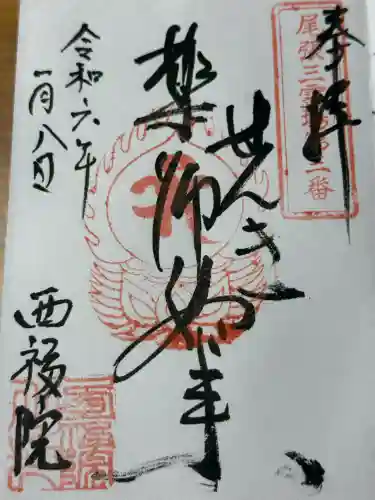 奉拝
尾張三霊場第二番
せんき
薬師如来
令和六年
一月八日
西福院